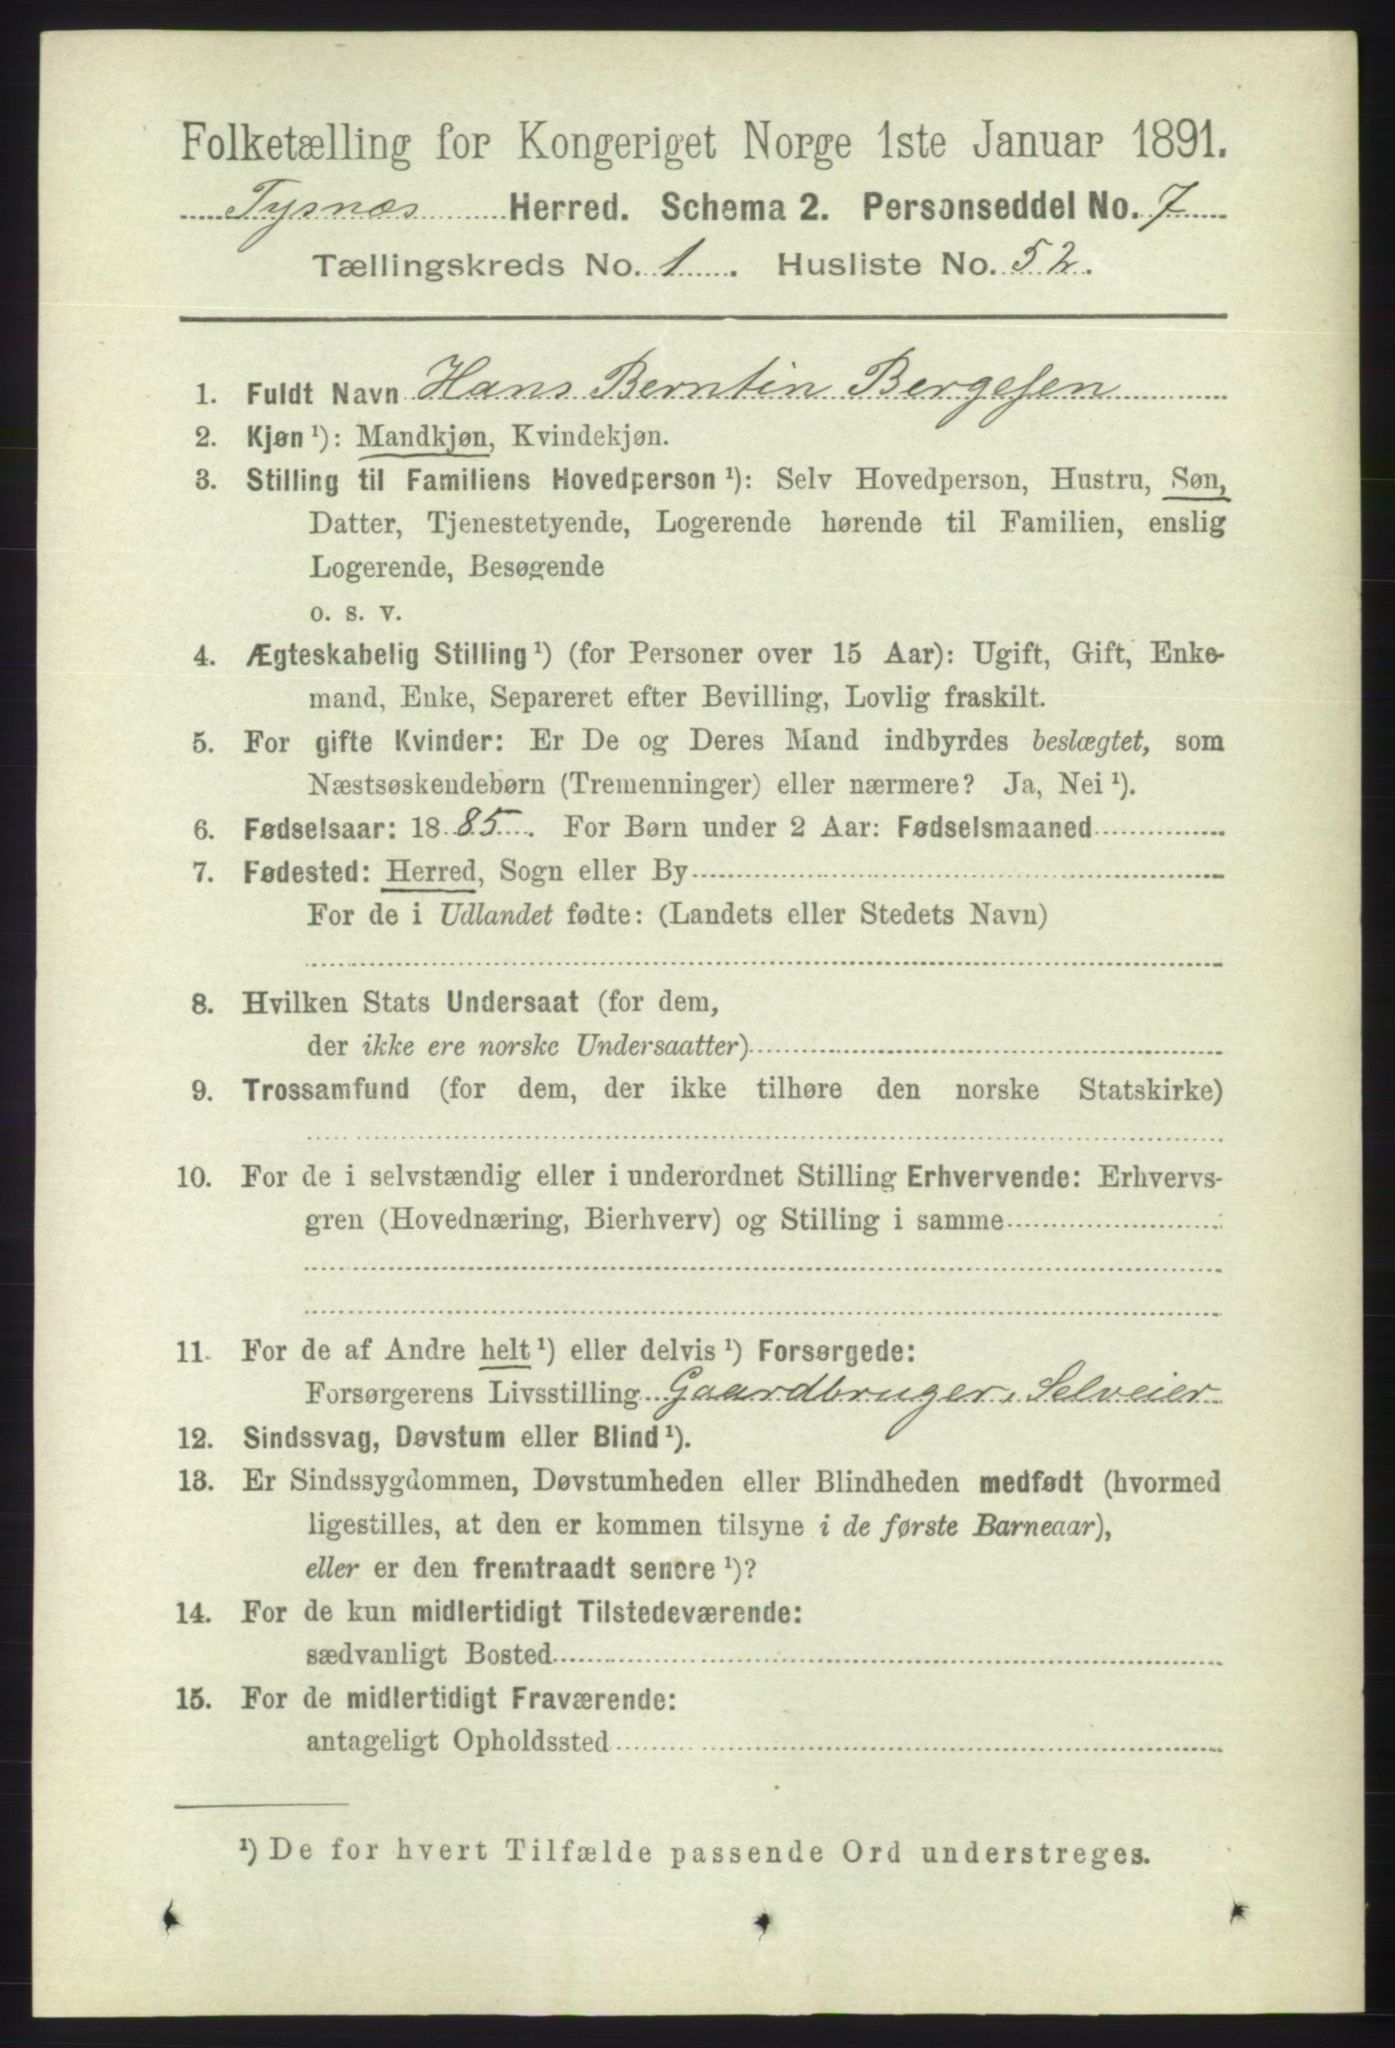 Folketælling for Kongeriget Norge 1ste Januar 1891.
Tysnæs Herred. Schema 2. Personseddel No. 7
Tællingskreds No. 1. Husliste No. 52.
1. Fuldt Navn Hans Berntin Bergesen
2. Kjøn ¹): Mandkjøn, Kvindekjøn.
3. Stilling til Familiens Hovedperson ¹): Selv Hovedperson, Hustru, Søn,
Datter, Tjenestetyende, Logerende hørende til Familien, enslig
Logerende, Besøgende
o. s. v.
4. Ægteskabelig Stilling ¹) (for Personer over 15 Aar): Ugift, Gift, Enke-
mand, Enke, Separeret efter Bevilling, Lovlig fraskilt.
5. For gifte Kvinder: Er De og Deres Mand indbyrdes beslægtet, som
Næstsøskendebørn (Tremenninger) eller nærmere? Ja, Nei ¹).
6. Fødselsaar: 1885. For Børn under 2 Aar: Fødselsmaaned
7. Fødested: Herred, Sogn eller By
For de i Udlandet fødte: (Landets eller Stedets Navn)
8. Hvilken Stats Undersaat (for dem,
der ikke ere norske Undersaatter)
9. Trossamfund (for dem, der ikke tilhøre den norske Statskirke)
10. For de i selvstændig eller i underordnet Stilling Erhvervende: Erhvervs-
gren (Hovednæring, Bierhverv) og Stilling i samme
11. For de af Andre helt ¹) eller delvis ¹) Forsørgede:
Forsørgerens Livsstilling Gaardbruger, Selveier
12. Sindssvag, Døvstum eller Blind ¹).
13. Er Sindssygdommen, Døvstumheden eller Blindheden medfødt (hvormed
ligestilles, at den er kommen tilsyne i de første Barneaar),
eller er den fremtraadt senere ¹)?
14. For de kun midlertidigt Tilstedeværende:
sædvanligt Bosted
15. For de midlertidigt Fraværende:
antageligt Opholdssted
¹) De for hvert Tilfælde passende Ord understreges.